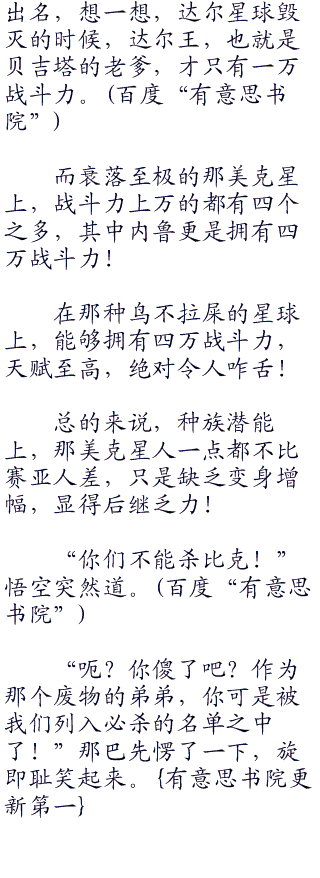 出名，想一想，达尔星球毁
灭的时候，达尔王，也就是
贝吉塔的老爹，才只有一万
战斗力。(百度“有意思书
院”)
而衰落至极的那美克星
上，战斗力上万的都有四个
之多，其中内鲁更是拥有四
万战斗力！
在那种鸟不拉屎的星球
上，能够拥有四万战斗力，
天赋至高，绝对令人咋舌！
总的来说，种族潜能
上，那美克星人一点都不比
赛亚人差，只是缺乏变身增
幅，显得后继乏力！
“你们不能杀比克！”
悟空突然道。(百度“有意思
书院”)
“呃？你傻了吧？作为
那个废物的弟弟，你可是被
我们列入必杀的名单之中
了！”那巴先愣了一下，旋
即耻笑起来。{有意思书院更
新第一}